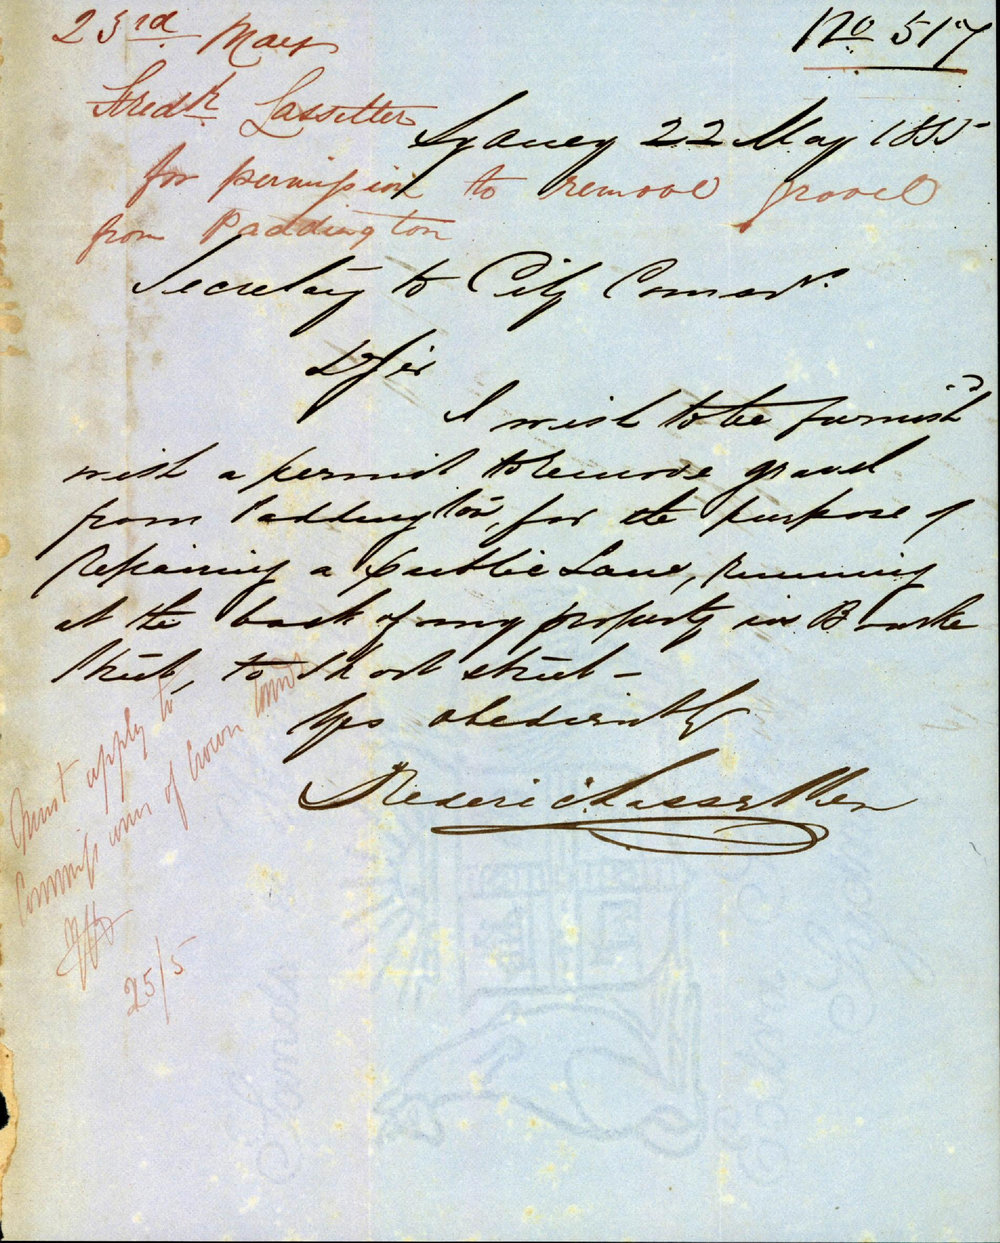 23rd May
No 517
Fredk Lassetter
Sydney 22 May 1855
for permission to remove gravel
from Paddington
Secretary to City Comsr.
Sir
I wish to be furnish'd
with a permit to remove gravel
from Paddington, for the purpose of
repairing a public Lane, running
at the back of my property in Bourke
Street, to Short street –
Yrs obediently
Frederic Lassetter
Must apply to
Commissioner of Crown Lands
25/5